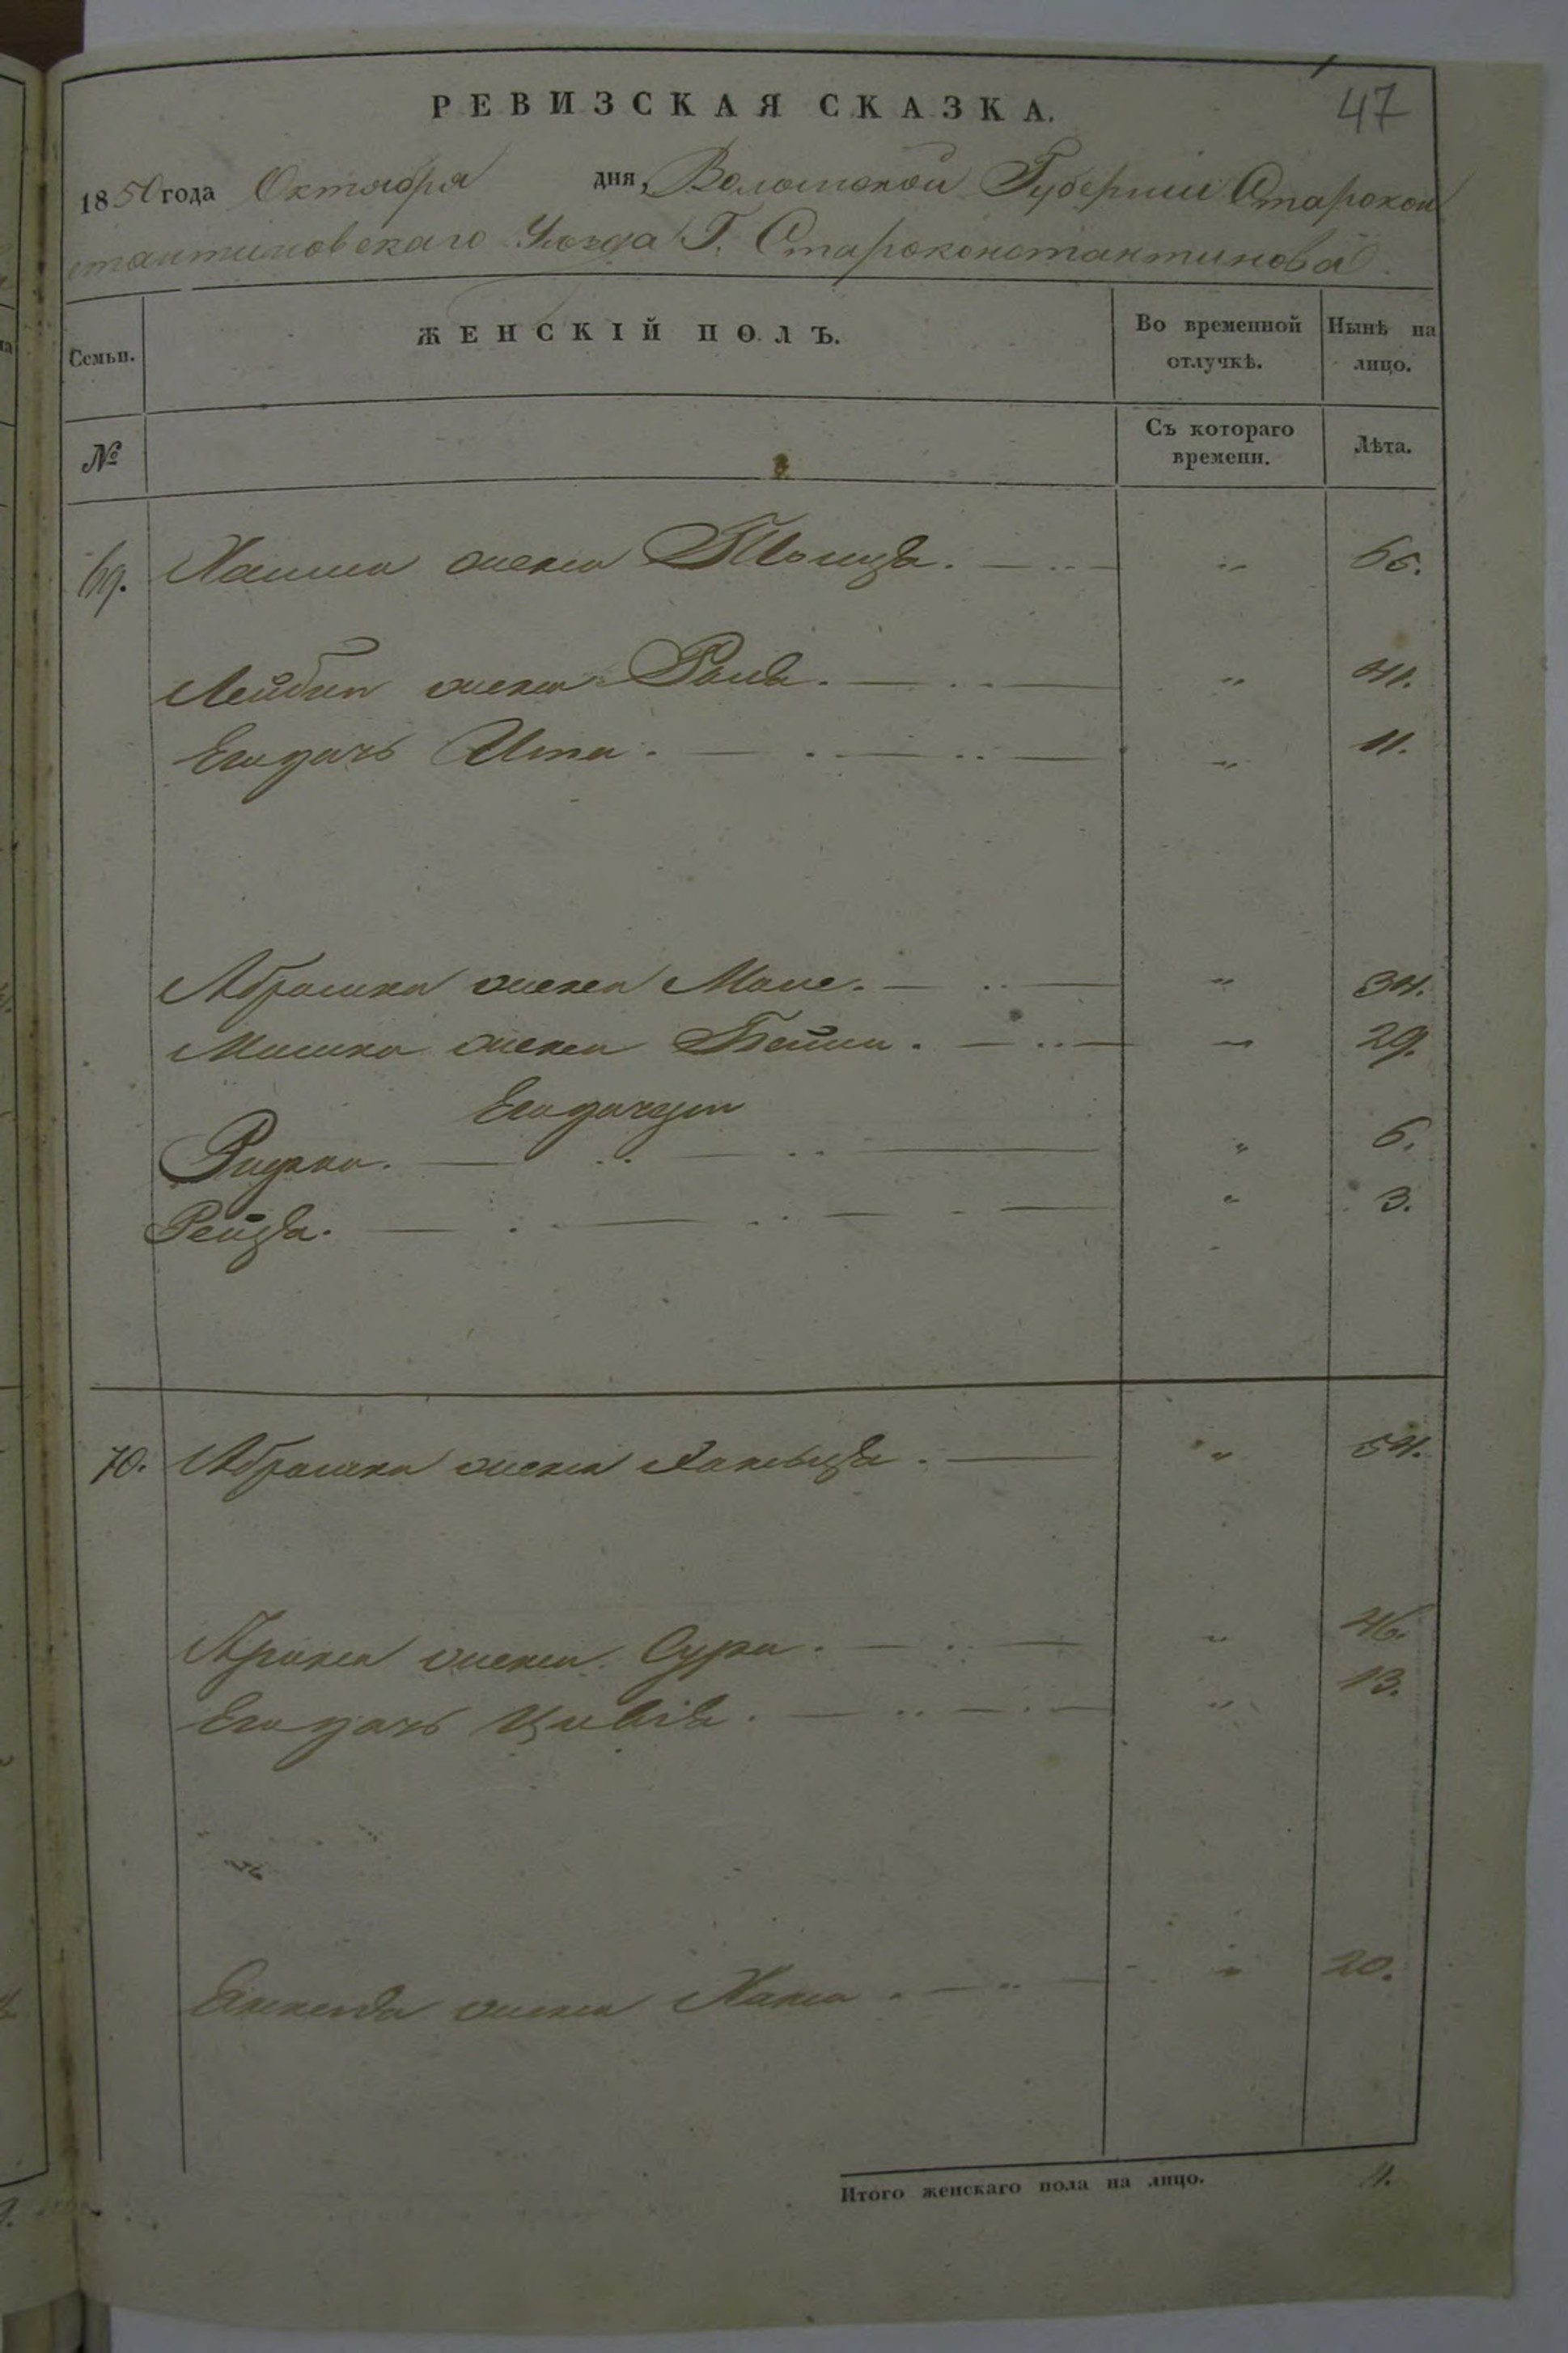 47
РЕВИЗСКАЯ СКАЗКА.
1850 года Октября дня, Волынской Губерніи Старокон
стантиновскаго Уѣзда Г. Староконстантинова
Семьи. ЖЕНСКІЙ ПОЛЪ. Во временной отлучкѣ. Нынѣ на лицо.
№ Съ котораго времени. Лѣта.
69. жена " 65.
Лейбы жена " 41.
Его дочь Ита. " 11.
Абрамка жена " 34.
Мошка жена Бейла. " 29.
Его дочери
" 6.
Рейзя. " 3.
70. Абрамка жена " 54.
жена Сура. " 46.
Его дочь Цивія. " 13.
жена Хана. " 20.
Итого женскаго пола на лицо. 11.